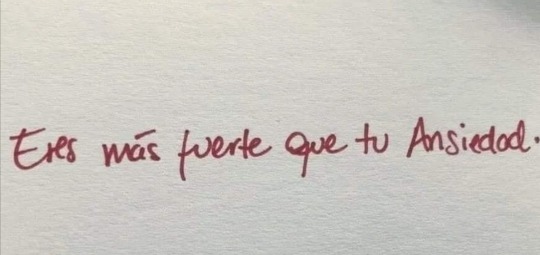 Eres más fuerte que tu Ansiedad.